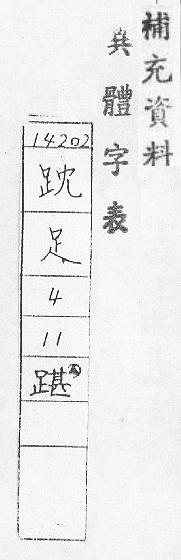 補充資料
異體字表
14202
䟢
足
4
11
踸